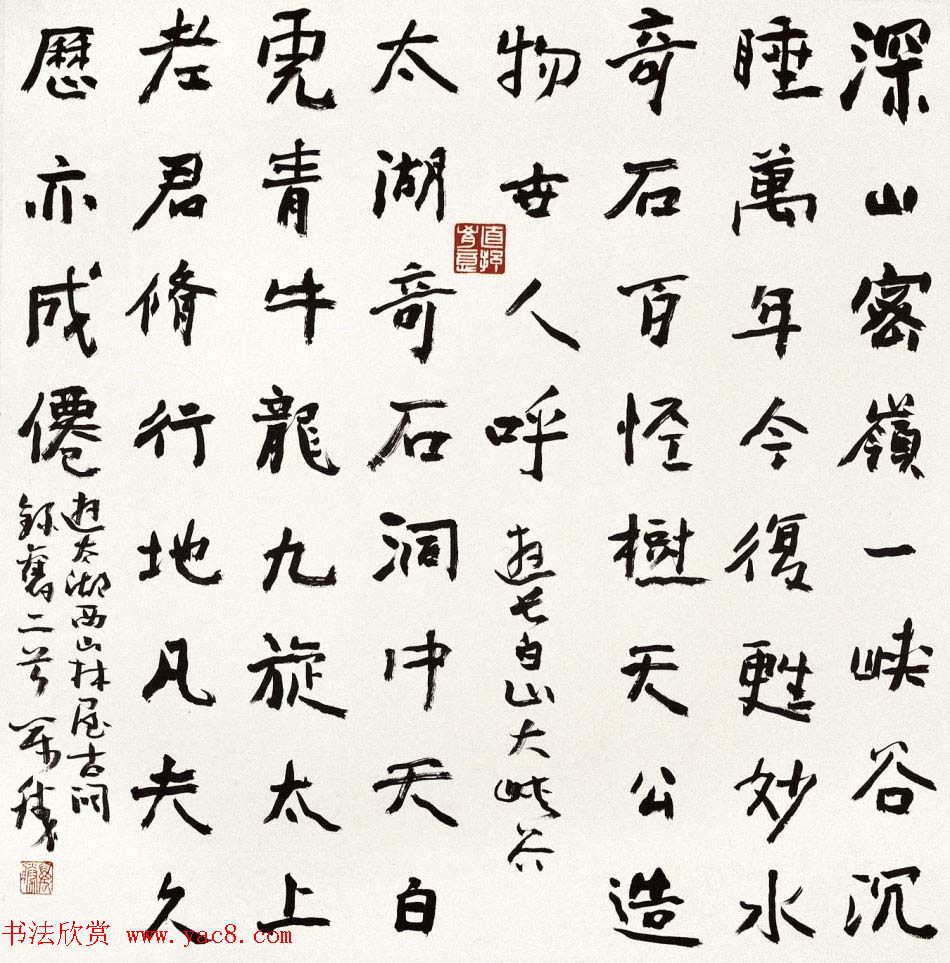 深山密嶺一峡谷沉
睡萬年今復甦妙水
奇石百怪樹天公造
物世人呼 遊長白山大峡谷
太湖奇石洞中天白
虎青牛龍九旋太上
老君脩行地凡夫久
歷亦成僊 遊太湖西山林屋古洞
錄舊二首
书法欣赏 www.yac8.com